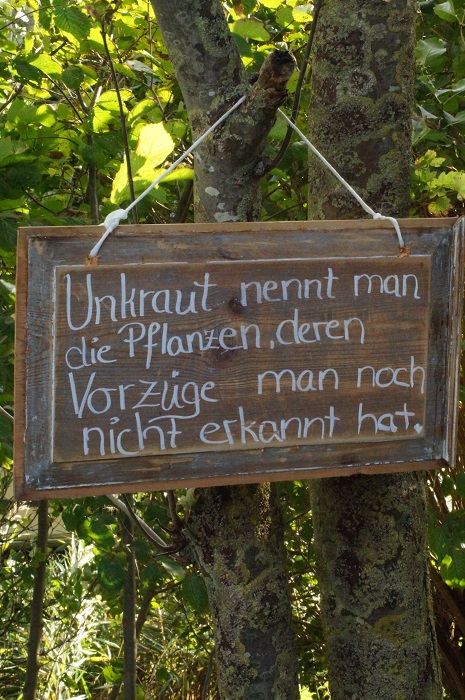 Unkraut nennt man
die Pflanzen, deren
Vorzüge man noch
nicht erkannt hat.